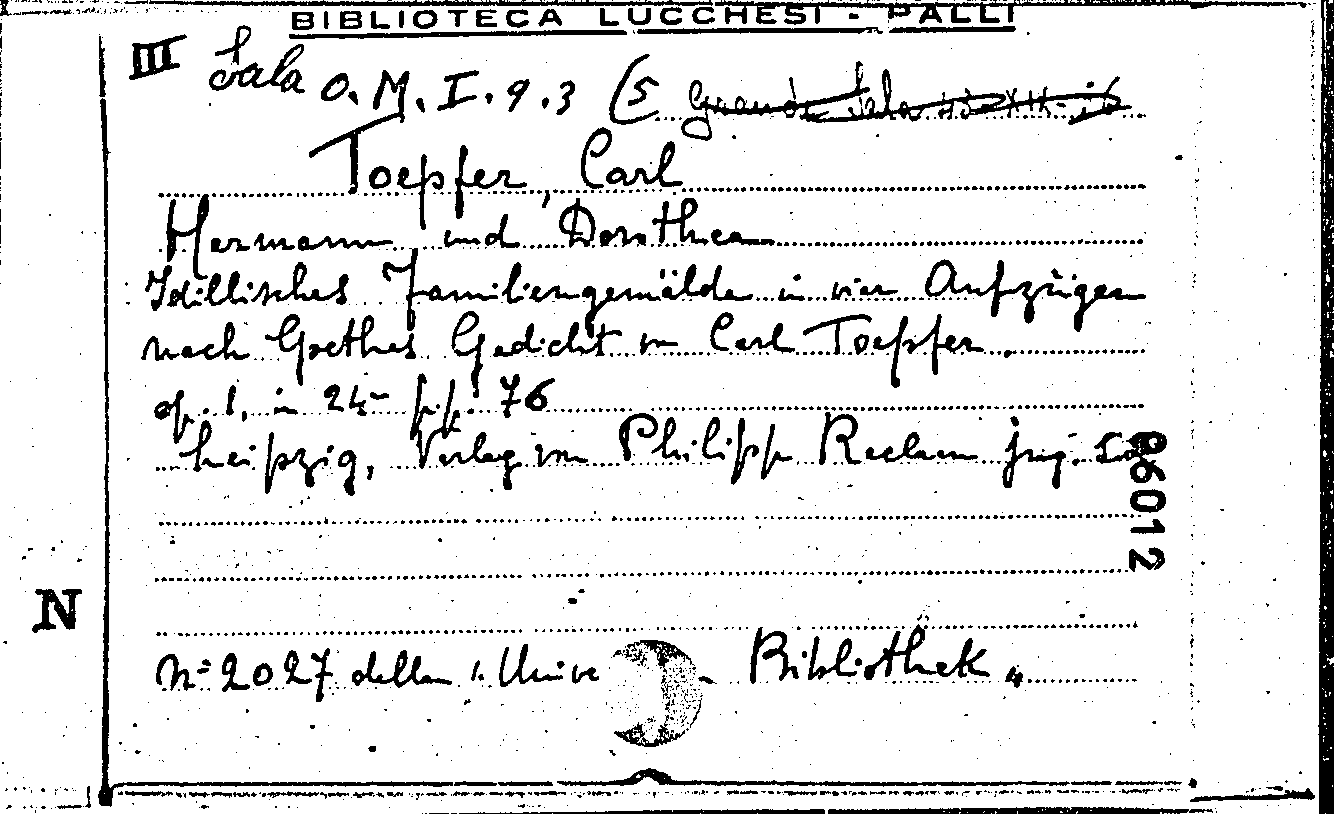 BIBLIOTECA LUCCHESI - PALLI
III Sala O. M. I. 9. 3 (5 Grande Sala
Toepfer, Carl
Hermann und Dorothea
Idillisches Familiengemälde in vier Aufzügen
nach Goethes Gedicht von Carl Toepfer.
op. 1, in 24- p.p. 76
Leipzig, Verlag von Philipp Reclam jug.
86012
N
N= 2027 della Bibliothek "